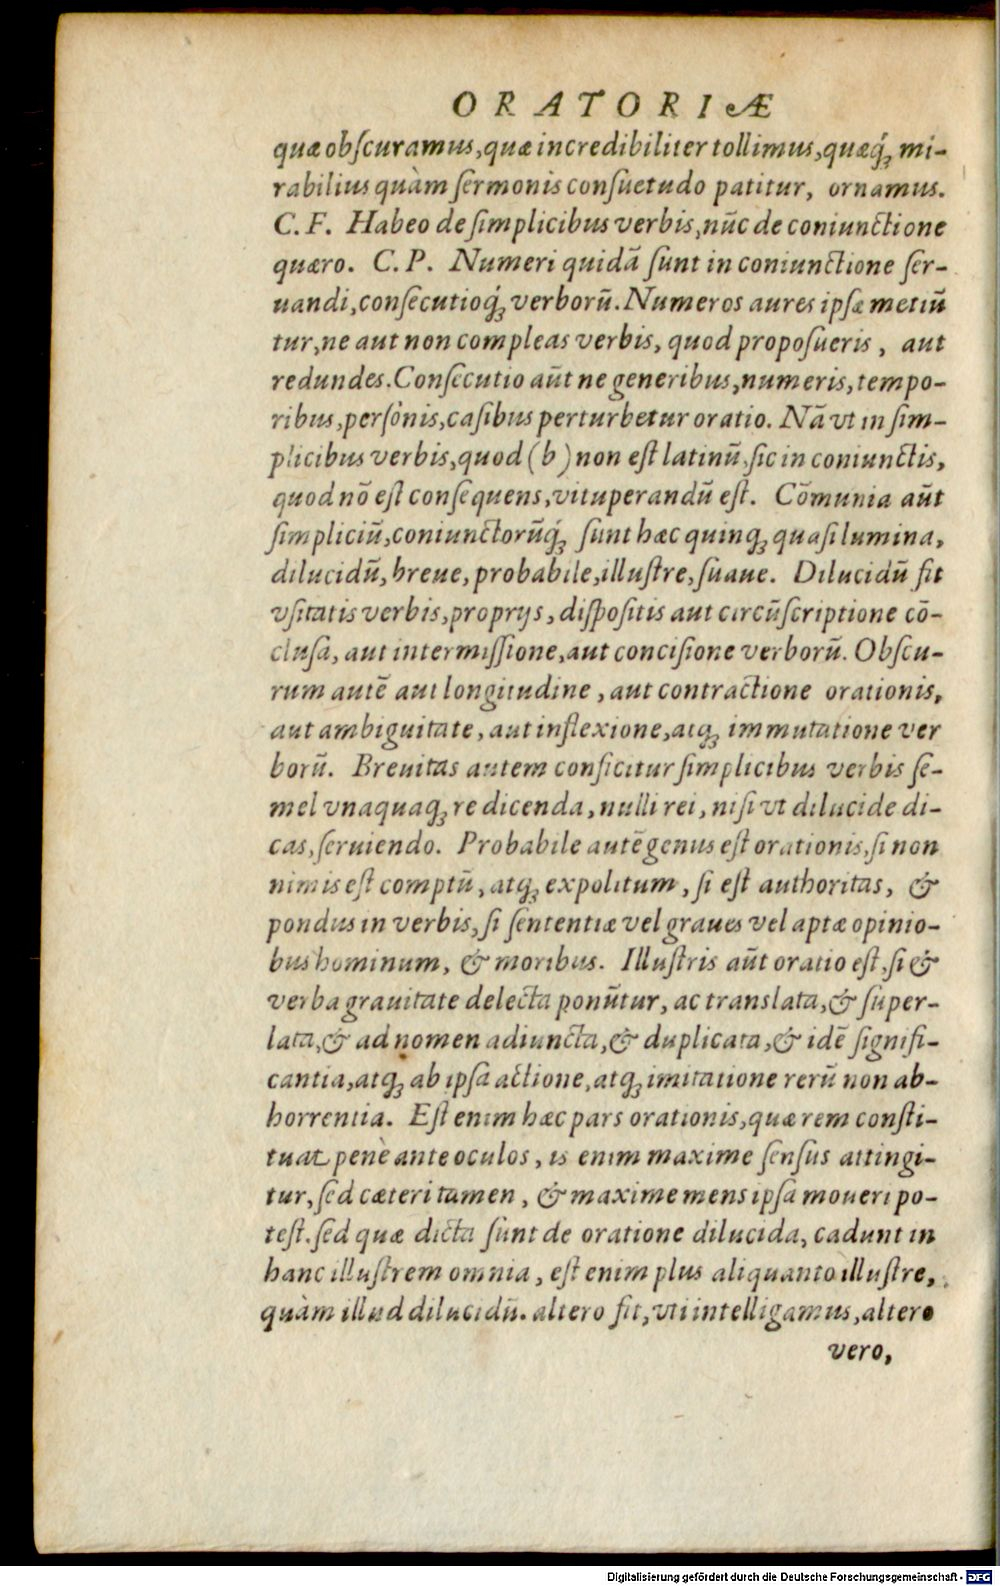 ORATORIÆ
quæ obſcuramus, quæ incredibiliter tollimus, quæq́; mi-
rabilius quàm ſermonis conſuetudo patitur, ornamus.
C. F. Habeo de ſimplicibus verbis, nūc de coniunctione
quæro. C. P. Numeri quidã ſunt in coniunctione ſer-
uandi, conſecutioq́; verborū. Numeros aures ipſæ metiū
tur, ne aut non compleas verbis, quod propoſueris, aut
redundes. Conſecutio aūt ne generibus, numeris, tempo-
ribus, perſònis, caſibus perturbetur oratio. Nã vt in ſim-
plicibus verbis, quod (b) non eſt latinū, ſic in coniunctis,
quod nō eſt conſequens, vituperandū eſt. Cōmunia aūt
ſimpliciū, coniunctorūq́; ſunt hæc quinq; quaſi lumina,
dilucidū, breue, probabile, illuſtre, ſuaue. Dilucidū fit
vſitatis verbis, proprijs, diſpoſitis aut circūſcriptione cō-
cluſa, aut intermiſſione, aut conciſione verborū. Obſcu-
rum autē aut longitudine, aut contractione orationis,
aut ambiguitate, aut inflexione, atq; immutatione ver
borū. Breuitas autem conficitur ſimplicibus verbis ſe-
mel vnaquaq; re dicenda, nulli rei, niſi vt dilucide di-
cas, ſeruiendo. Probabile autē genus eſt orationis, ſi non
nimis eſt comptū, atq; expolitum, ſi eſt authoritas, &
pondus in verbis, ſi ſententiæ vel graues vel aptæ opinio-
bus hominum, & moribus. Illuſtris aūt oratio eſt, ſi &
verba grauitate delecta ponūtur, ac translata, & ſuper-
lata, & ad nomen adiuncta, & duplicata, & idē ſignifi-
cantia, atq; ab ipſa actione, atq; imitatione rerū non ab-
horrentia. Eſt enim hæc pars orationis, quæ rem conſti-
tuat penè ante oculos, is enim maxime ſenſus attingi-
tur, ſed cæteri tamen, & maxime mens ipſa moueri po-
teſt. ſed quæ dicta ſunt de oratione dilucida, cadunt in
hanc illuſtrem omnia, eſt enim plus aliquanto illuſtre,
quàm illud dilucidū. altero fit, vti intelligamus, altero
vero,
Digitalisierung gefördert durch die Deutsche Forschungsgemeinschaft - DFG